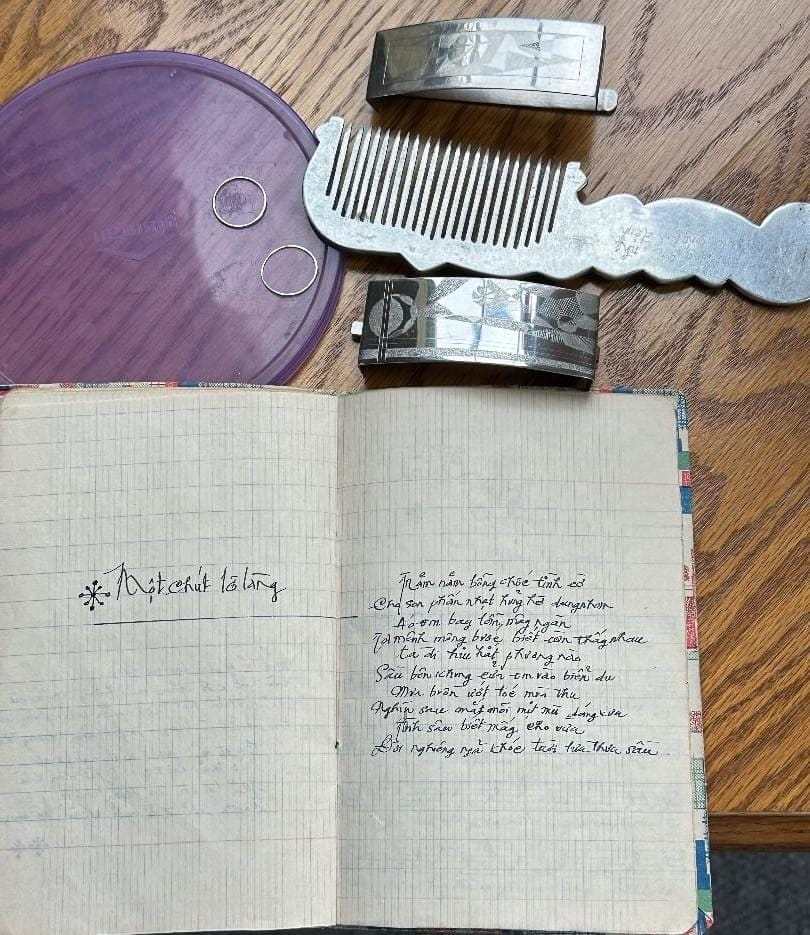 Một chút lỡ làng
Trăm năm bỗng chốc tình cờ
Cho son phấn nhạt hững hờ dung nhan
Áo em bay lộn mây ngàn
Tôi mênh mông bước biết còn thấy nhau
ta đi hiu hắt phương nào
Sầu bên em vào biển
Mưa buồn ướt mưa thu
Nghìn sau mắt mỏi mịt mù dáng xưa
Tình sầu biết mấy cho vừa
Đời nghiêng ngả khóc trời lưa thưa sầu